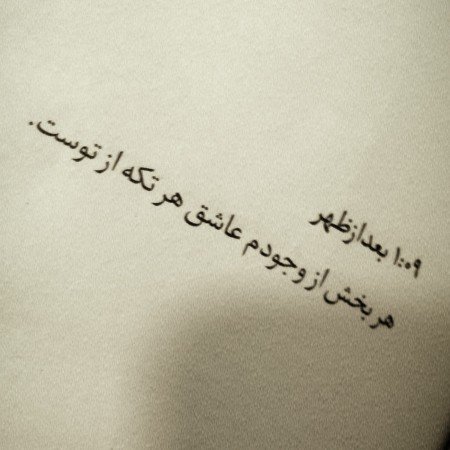 ۱:۰۹ بعدازظهر
هر بخش از وجودم عاشق هر تکه از توست.